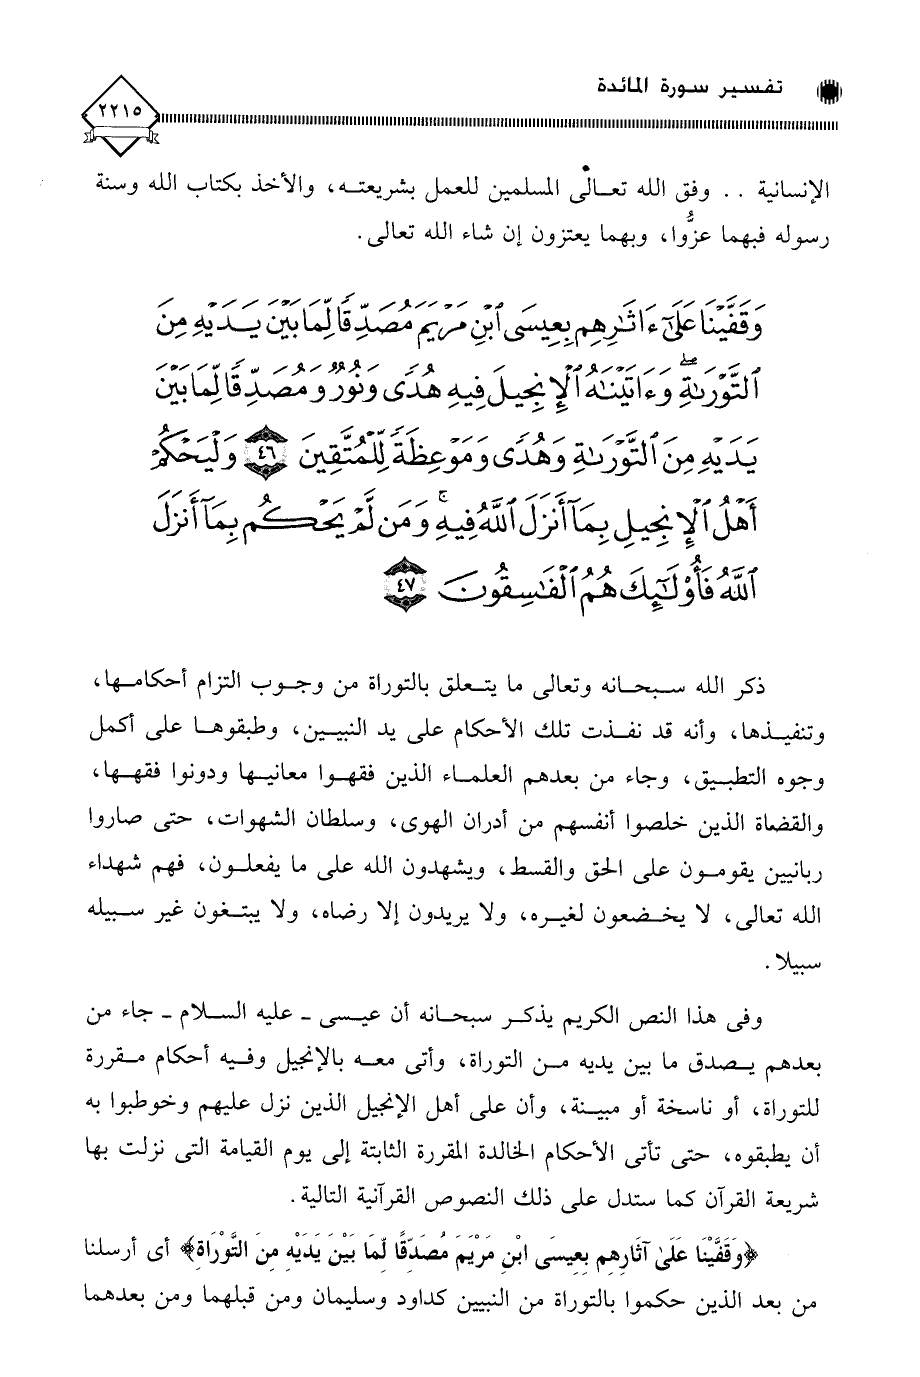 تفسير سورة المائدة
٢٢١٥
الإنسانية .. وفق الله تعالى المسلمين للعمل بشريعته، والأخذ بكتاب الله وسنة
رسوله فبهما عزُّوا، وبهما يعتزون إن شاء الله تعالى.
وَقَفَّيْنَا عَلَىٰٓ ءَاثَٰرِهِم بِعِيسَى ٱبْنِ مَرْيَمَ مُصَدِّقًا لِّمَا بَيْنَ يَدَيْهِ مِنَ
ٱلتَّوْرَىٰةِ ۖ وَءَاتَيْنَٰهُ ٱلْإِنجِيلَ فِيهِ هُدًى وَنُورٌ وَمُصَدِّقًا لِّمَا بَيْنَ
يَدَيْهِ مِنَ ٱلتَّوْرَىٰةِ وَهُدًى وَمَوْعِظَةً لِّلْمُتَّقِينَ ٤٦ وَلْيَحْكُمْ
أَهْلُ ٱلْإِنجِيلِ بِمَآ أَنزَلَ ٱللَّهُ فِيهِ ۚ وَمَن لَّمْ يَحْكُم بِمَآ أَنزَلَ
ٱللَّهُ فَأُو۟لَٰٓئِكَ هُمُ ٱلْفَٰسِقُونَ ٤٧
ذكر الله سبحانه وتعالى ما يتعلق بالتوراة من وجوب التزام أحكامها،
وتنفيذها، وأنه قد نفذت تلك الأحكام على يد النبيين، وطبقوها على أكمل
وجوه التطبيق، وجاء من بعدهم العلماء الذين فقهوا معانيها ودونوا فقهها،
والقضاة الذين خلصوا أنفسهم من أدران الهوى، وسلطان الشهوات، حتى صاروا
ربانيين يقومون على الحق والقسط، ويشهدون الله على ما يفعلون، فهم شهداء
الله تعالى، لا يخضعون لغيره، ولا يريدون إلا رضاه، ولا يبتغون غير سبيله
سبيلا.
وفى هذا النص الكريم يذكر سبحانه أن عيسى - عليه السلام - جاء من
بعدهم يصدق ما بين يديه من التوراة، وأتى معه بالإنجيل وفيه أحكام مقررة
للتوراة، أو ناسخة أو مبينة، وأن على أهل الإنجيل الذين نزل عليهم وخوطبوا به
أن يطبقوه، حتى تأتى الأحكام الخالدة المقررة الثابتة إلى يوم القيامة التى نزلت بها
شريعة القرآن كما ستدل على ذلك النصوص القرآنية التالية.
﴿وَقَفَّيْنَا عَلَىٰ آثَارِهِم بِعِيسَى ابْنِ مَرْيَمَ مُصَدِّقًا لِّمَا بَيْنَ يَدَيْهِ مِنَ التَّوْرَاةِ﴾ أى أرسلنا
من بعد الذين حكموا بالتوراة من النبيين كداود وسليمان ومن قبلهما ومن بعدهما